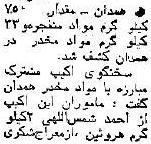 ● همدان – مقدار ۷۵۰
کیلو گرم مواد منفجره و ۳۳
کیلو گرم مواد مخدر در
همدان کشف شد.
سخنگوی اکیپ مشترک
مبارزه با مواد مخدر همدان
گفت : ماموران این اکیپ
از احمد شمس‌اللهی ۲کیلو
گرم هروئین ، ازمعراج‌شکری